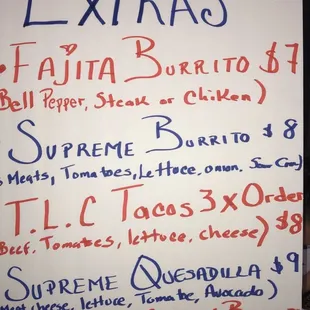 EXTRAS
• FAJITA BURRITO $7
Bell Pepper, Steak or Chicken)
SUPREME BURRITO $8
Meats, Tomatoes, Lettuce, onion, Sour Cream)
T.L.C TACOS 3x Order
Beef, Tomatoes, lettuce, cheese) $8
SUPREME QUESADILLA $9
Meat, cheese, lettuce, Tomatoe, Avocado)